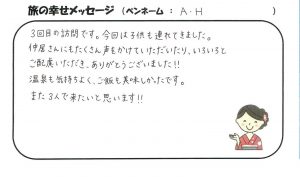 旅の幸せメッセージ (ペンネーム : A・H )
3回目の訪問です。今回は子供も連れてきました。
仲居さんにもたくさん声をかけていただいたり、いろいろと
ご配慮いただき、ありがとうございました!!
温泉も気持ちよく、ご飯も美味しかったです。
また3人で来たいと思います!!